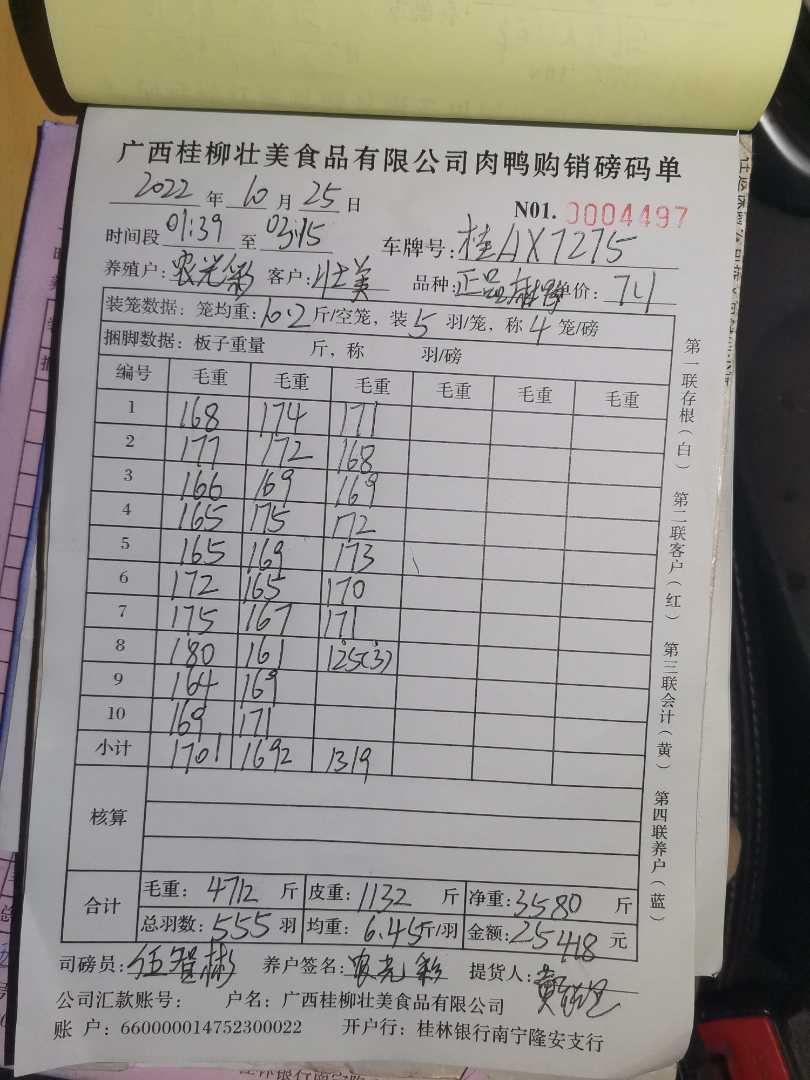 广西桂柳壮美食品有限公司肉鸭购销磅码单
2022 年 10 月 25 日 N01. 0004497
时间段 01:39 至 03:15 车牌号: 桂AX7275
养殖户: 农光彩 客户: 壮美 品种: 正品 单价: 7.1
装笼数据: 笼均重: 10.2 斤/空笼, 装 5 羽/笼, 称 4 笼/磅
捆脚数据: 板子重量 斤, 称 羽/磅
编号 毛重 毛重 毛重 毛重 毛重 毛重
1 168 174 171
2 177 172 168
3 166 169 169
4 165 175 172
5 165 169 173
6 172 165 170
7 175 167 171
8 180 161 125(3)
9 164 169
10 169 171
小计 1701 1692 1319
核算
合计 毛重: 4712 斤 皮重: 1132 斤 净重: 3580 斤
总羽数: 555 羽 均重: 6.45 斤/羽 金额: 25418 元
司磅员: 伍智彬 养户签名: 农光彩 提货人: 黄
公司汇款账号: 户名: 广西桂柳壮美食品有限公司
账 户: 660000014752300022 开户行: 桂林银行南宁隆安支行
第一联存根(白) 第二联客户(红) 第三联会计(黄) 第四联养户(蓝)